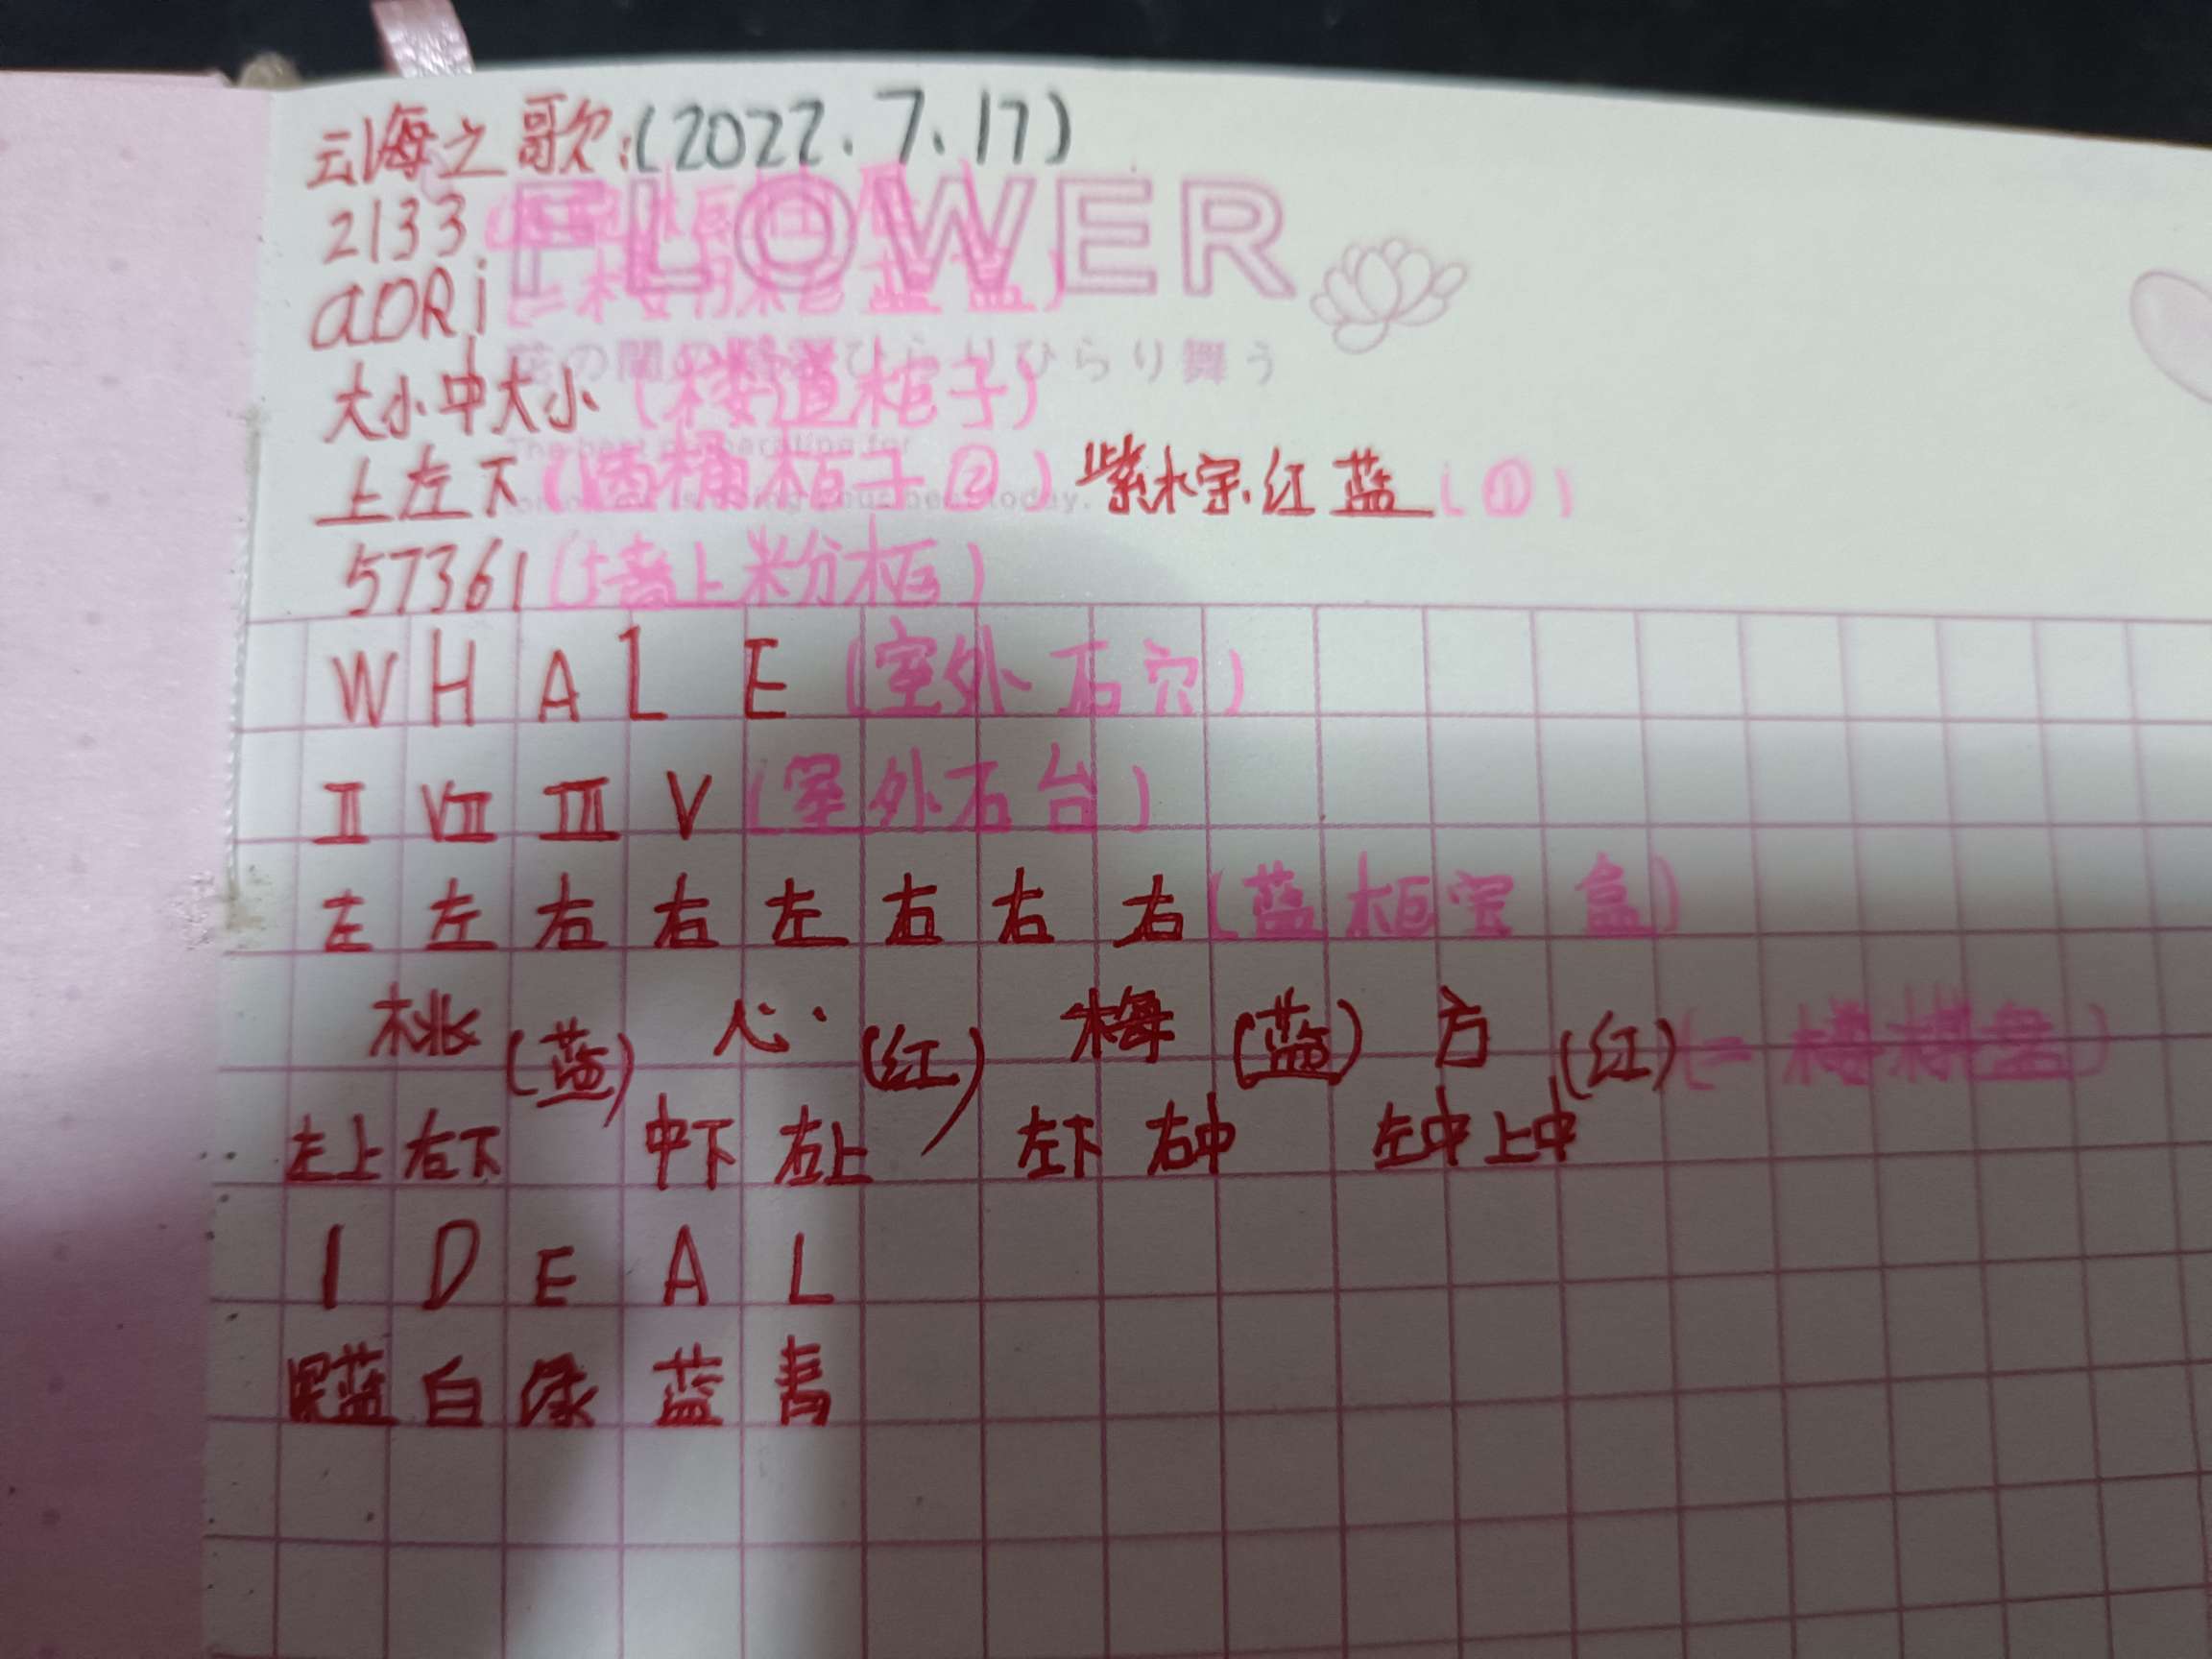 云海之歌:(2022.7.17)
2133
FLOWER
aORi
ひらりひらり舞う
大小中大小(楼道柜子)
上左下(酒桶柜子②) 紫棕.红蓝(①)
57361(墙上粉柜)
WHALE(室外石穴)
Ⅱ Ⅶ Ⅲ Ⅴ(室外石台)
左左右右左右右右(蓝柜宝盒)
桃(蓝) 心(红) 梅(蓝) 方(红)(一楼棋盘)
左上右下 中下右上 左下右中 左中上中
IDEAL
黑蓝白绿蓝青